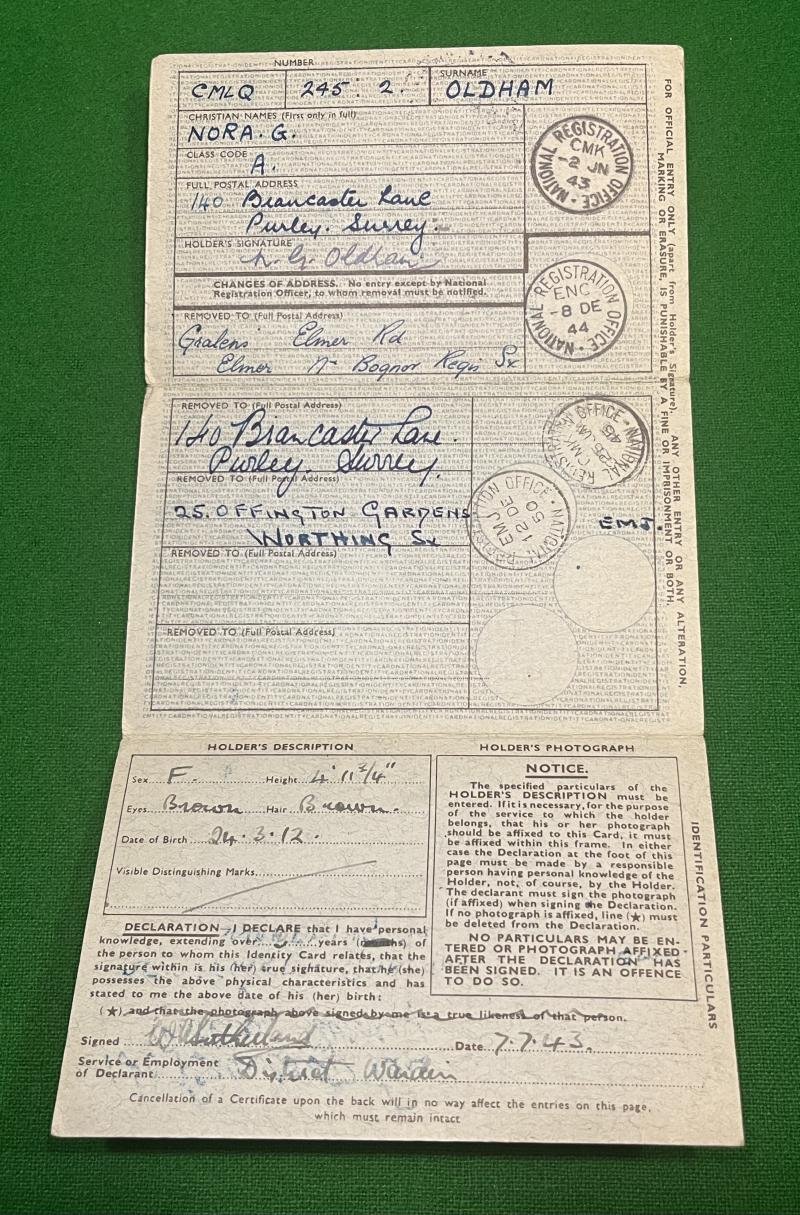 NUMBER
SURNAME
CMLQ 245 : 2. OLDHAM
CHRISTIAN NAMES (First only in full)
NORA. G.
CLASS CODE
A.
FULL POSTAL ADDRESS
140 Brancaster Lane
Purley. Surrey.
HOLDER'S SIGNATURE
N. G. Oldham.
CHANGES OF ADDRESS. No entry except by National
Registration Officer, to whom removal must be notified.
REMOVED TO (Full Postal Address)
Elmer Rd
Elmer Nr Bognor Regis Sx
NATIONAL REGISTRATION OFFICE
CMK
-2 JN
43
NATIONAL REGISTRATION OFFICE
ENC
-8 DE
44
FOR OFFICIAL ENTRY ONLY (apart from Holder's Signature). ANY OTHER ENTRY OR ANY ALTERATION,
MARKING OR ERASURE, IS PUNISHABLE BY A FINE OR IMPRISONMENT OR BOTH.
REMOVED TO (Full Postal Address)
140 Brancaster Lane.
Purley. Surrey.
REMOVED TO (Full Postal Address)
25. OFFINGTON GARDENS
WORTHING Sx
EMJ.
REMOVED TO (Full Postal Address)
REMOVED TO (Full Postal Address)
NATIONAL REGISTRATION OFFICE
NATIONAL REGISTRATION OFFICE
EMJ
12 DE
50
HOLDER'S DESCRIPTION
Sex F. Height 4' 11 3/4"
Eyes Brown Hair Brown.
Date of Birth 24.3.12.
Visible Distinguishing Marks
DECLARATION I DECLARE that I have personal
knowledge, extending over years of
the person to whom this Identity Card relates, that the
signature within is his (her) true signature, that he (she)
possesses the above physical characteristics and has
stated to me the above date of his (her) birth:
(★) and that the photograph above signed by me is a true likeness of that person.
Signed Sutherland Date 7.7.43.
Service or Employment
of Declarant District Warden
Cancellation of a Certificate upon the back will in no way affect the entries on this page,
which must remain intact
HOLDER'S PHOTOGRAPH
NOTICE.
The specified particulars of the
HOLDER'S DESCRIPTION must be
entered. If it is necessary, for the purpose
of the service to which the holder
belongs, that his or her photograph
should be affixed to this Card, it must
be affixed within this frame. In either
case the Declaration at the foot of this
page must be made by a responsible
person having personal knowledge of the
Holder, not, of course, by the Holder.
The declarant must sign the photograph
(if affixed) when signing the Declaration.
If no photograph is affixed, line (★) must
be deleted from the Declaration.
NO PARTICULARS MAY BE EN-
TERED OR PHOTOGRAPH AFFIXED
AFTER THE DECLARATION HAS
BEEN SIGNED. IT IS AN OFFENCE
TO DO SO.
IDENTIFICATION PARTICULARS